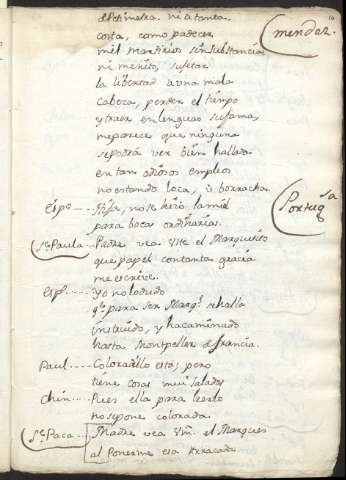 10
de Petimetra. ni a tanta
costa, como padecer
mendez.
mil martirios sin substancia
ni merito, sujetar
la libertad à una mala
cabeza, perder el tiempo
y traer en lenguas su fama,
me parece que ninguna
se podrà ver bien hallada
en tan odiosos empleos
no estando loca, ò borracha.
Portug.sa
Espo.... Hija, no se hizo la miel
para bocas ordinarias.
Sa. Paula.. Padre vea Vste el Marquesito
que papel con tanta gracia
me escrive.
Espo.... Yo no lo dudo
qe. para ser Marqs. se halla
instruido, y ha caminado
hasta Montpeller de francia.
Paul..... Coloradillo està; pero
tiene cosas mui saladas
Chin.... Pues ella para leerlo
no se pone colorada.
Sa. Paca... Madre vea Vm. el Marques
al Ponerme esa